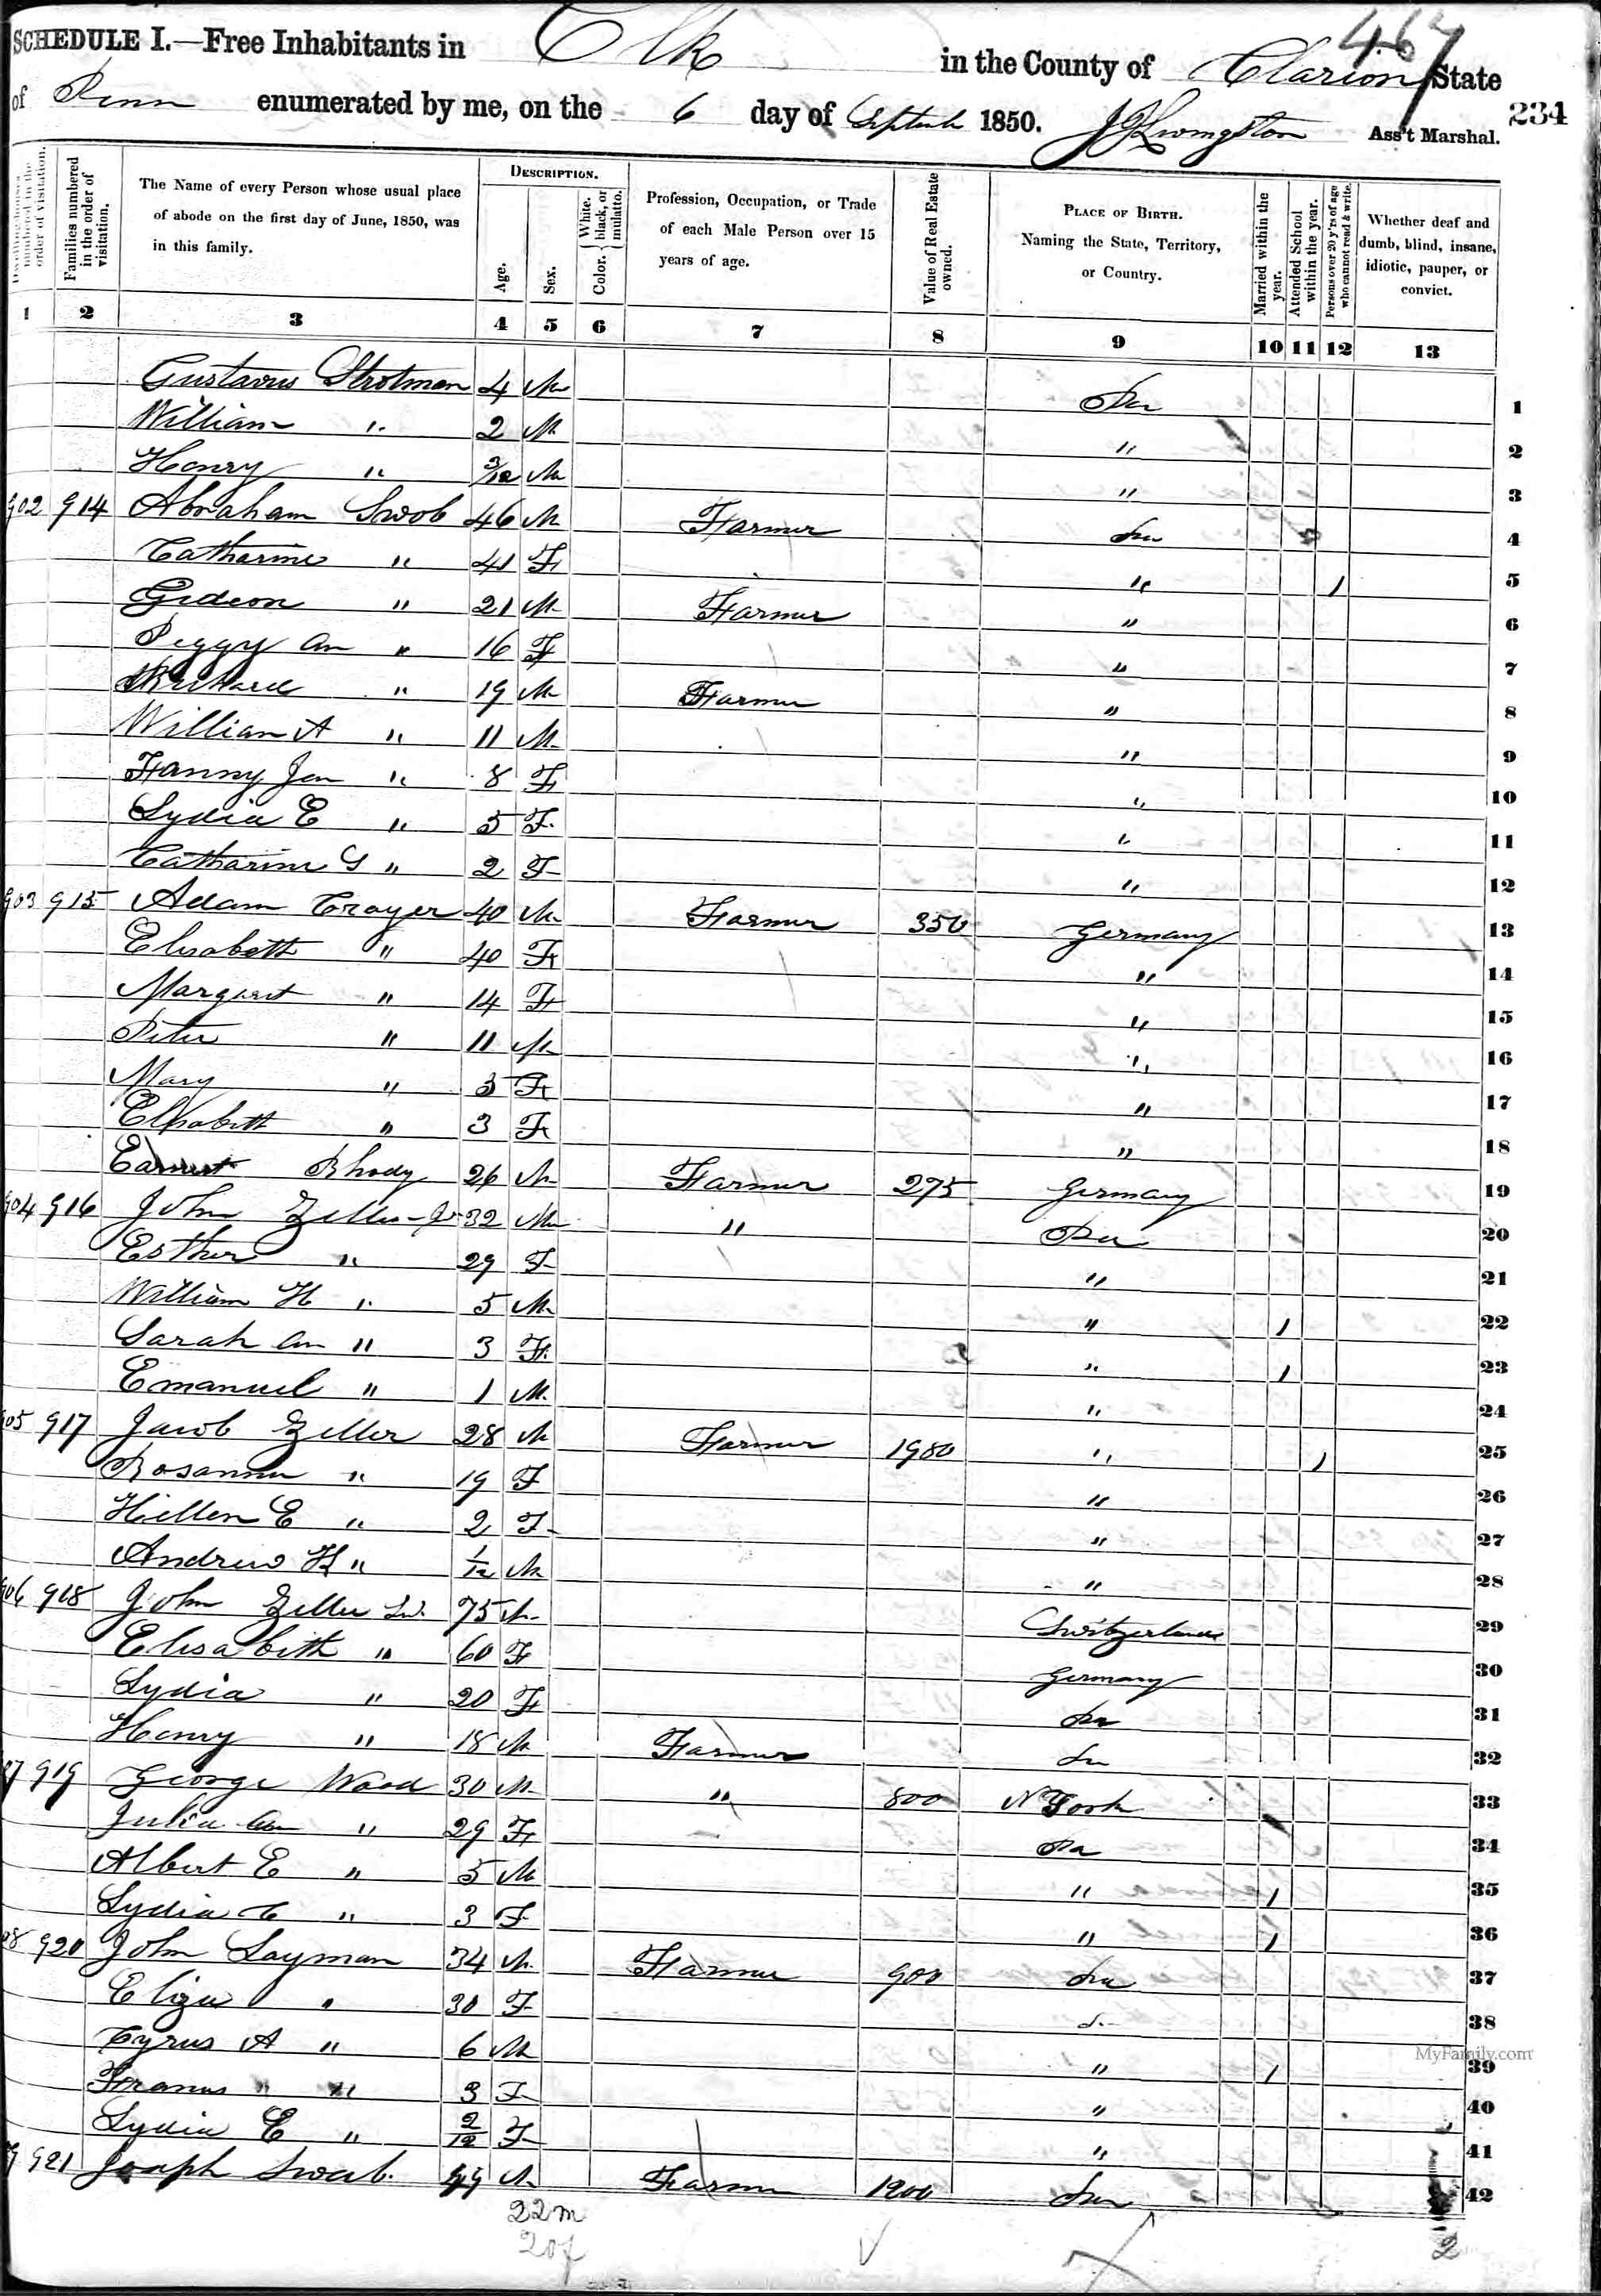 467
SCHEDULE I.—Free Inhabitants in Elk in the County of Clarion State
of Penn enumerated by me, on the 6 day of September 1850. J J Livingston Ass't Marshal.
234
Dwelling-houses numbered in the order of visitation.
Families numbered in the order of visitation.
The Name of every Person whose usual place of abode on the first day of June, 1850, was in this family.
DESCRIPTION.
Age.
Sex.
Color. { White, black, or mulatto.
Profession, Occupation, or Trade of each Male Person over 15 years of age.
Value of Real Estate owned.
PLACE OF BIRTH. Naming the State, Territory, or Country.
Married within the year.
Attended School within the year.
Persons over 20 y'rs of age who cannot read & write.
Whether deaf and dumb, blind, insane, idiotic, pauper, or convict.
1 2 3 4 5 6 7 8 9 10 11 12 13
Gustavus Strotman 4 M Pa 1
William " 2 M " 2
Henry " /12 M " 3
902 914 Abraham Swob 46 M Farmer Pa 4
Catharine " 41 F " 1 5
Gideon " 21 M Farmer " 6
Peggy An " 16 F " 7
" 19 M Farmer " 8
William A " 11 M " 9
Fanny Jan " 8 F " 10
Lydia E " 5 F " 11
Catharine S " 2 F " 12
903 915 Adam Troyer 40 M Farmer 350 Germany 13
Elisabeth " 40 F " 14
Margaret " 14 F " 15
Peter " 11 M " 16
Mary " 5 F " 17
Elisabeth " 3 F " 18
Earnest Rhody 26 M Farmer 275 Germany 19
904 916 John Zeller Jr 32 M " Pa 20
Esther " 29 F " 21
William H " 5 M " 1 22
Sarah An " 3 F " 1 23
Emanuel " 1 M " 24
905 917 Jacob Zeller 28 M Farmer 1980 " 1 25
Rosanna " 19 F " 26
Hellen E " 2 F " 27
Andrew H " 1/12 M " 28
906 918 John Zeller Sr. 75 M Switzerland 29
Elisabeth " 60 F Germany 30
Lydia " 20 F Pa 31
Henry " 18 M Farmer Pa 32
07 919 George Wood 30 M " 800 N York 33
Julia An " 29 F Pa 34
Albert E " 5 M " 1 35
Lydia C " 3 F " 1 36
08 920 John Layman 34 M Farmer 900 Pa 37
Eliza " 30 F 38
Cyrus A " 6 M " 1 39
Frances " " 3 F " 40
Lydia E " 2/12 F " 41
9 921 Joseph Swab. 49 M Farmer 1200 Pa 42
22 m
20 f
2
MyFamily.com